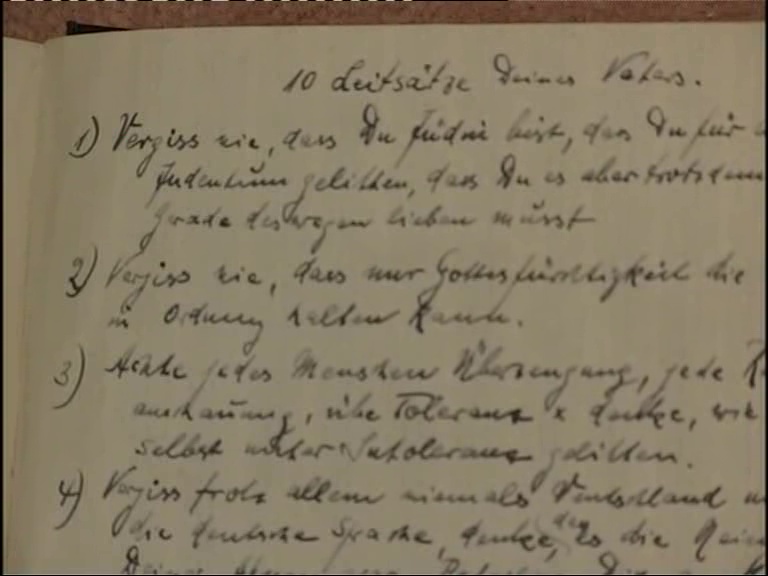 10 Leitsätze Deines Vaters.
1) Vergiss nie, dass Du Jüdin bist, dass Du für
Judentum gelitten, dass Du es aber trotzdem
gerade deswegen lieben müsst
2) Vergiss nie, dass nur Gottesfürchtigkeit die
in Ordnung halten kann.
3) Achte jedes Menschen Überzeugung, jede
anschauung, übe Toleranz & denke, wie
selbst unter Intoleranz gelitten.
4) Vergiss trotz allem niemals Deutschland
die deutsche Sprache, denke, dass es die
Deiner